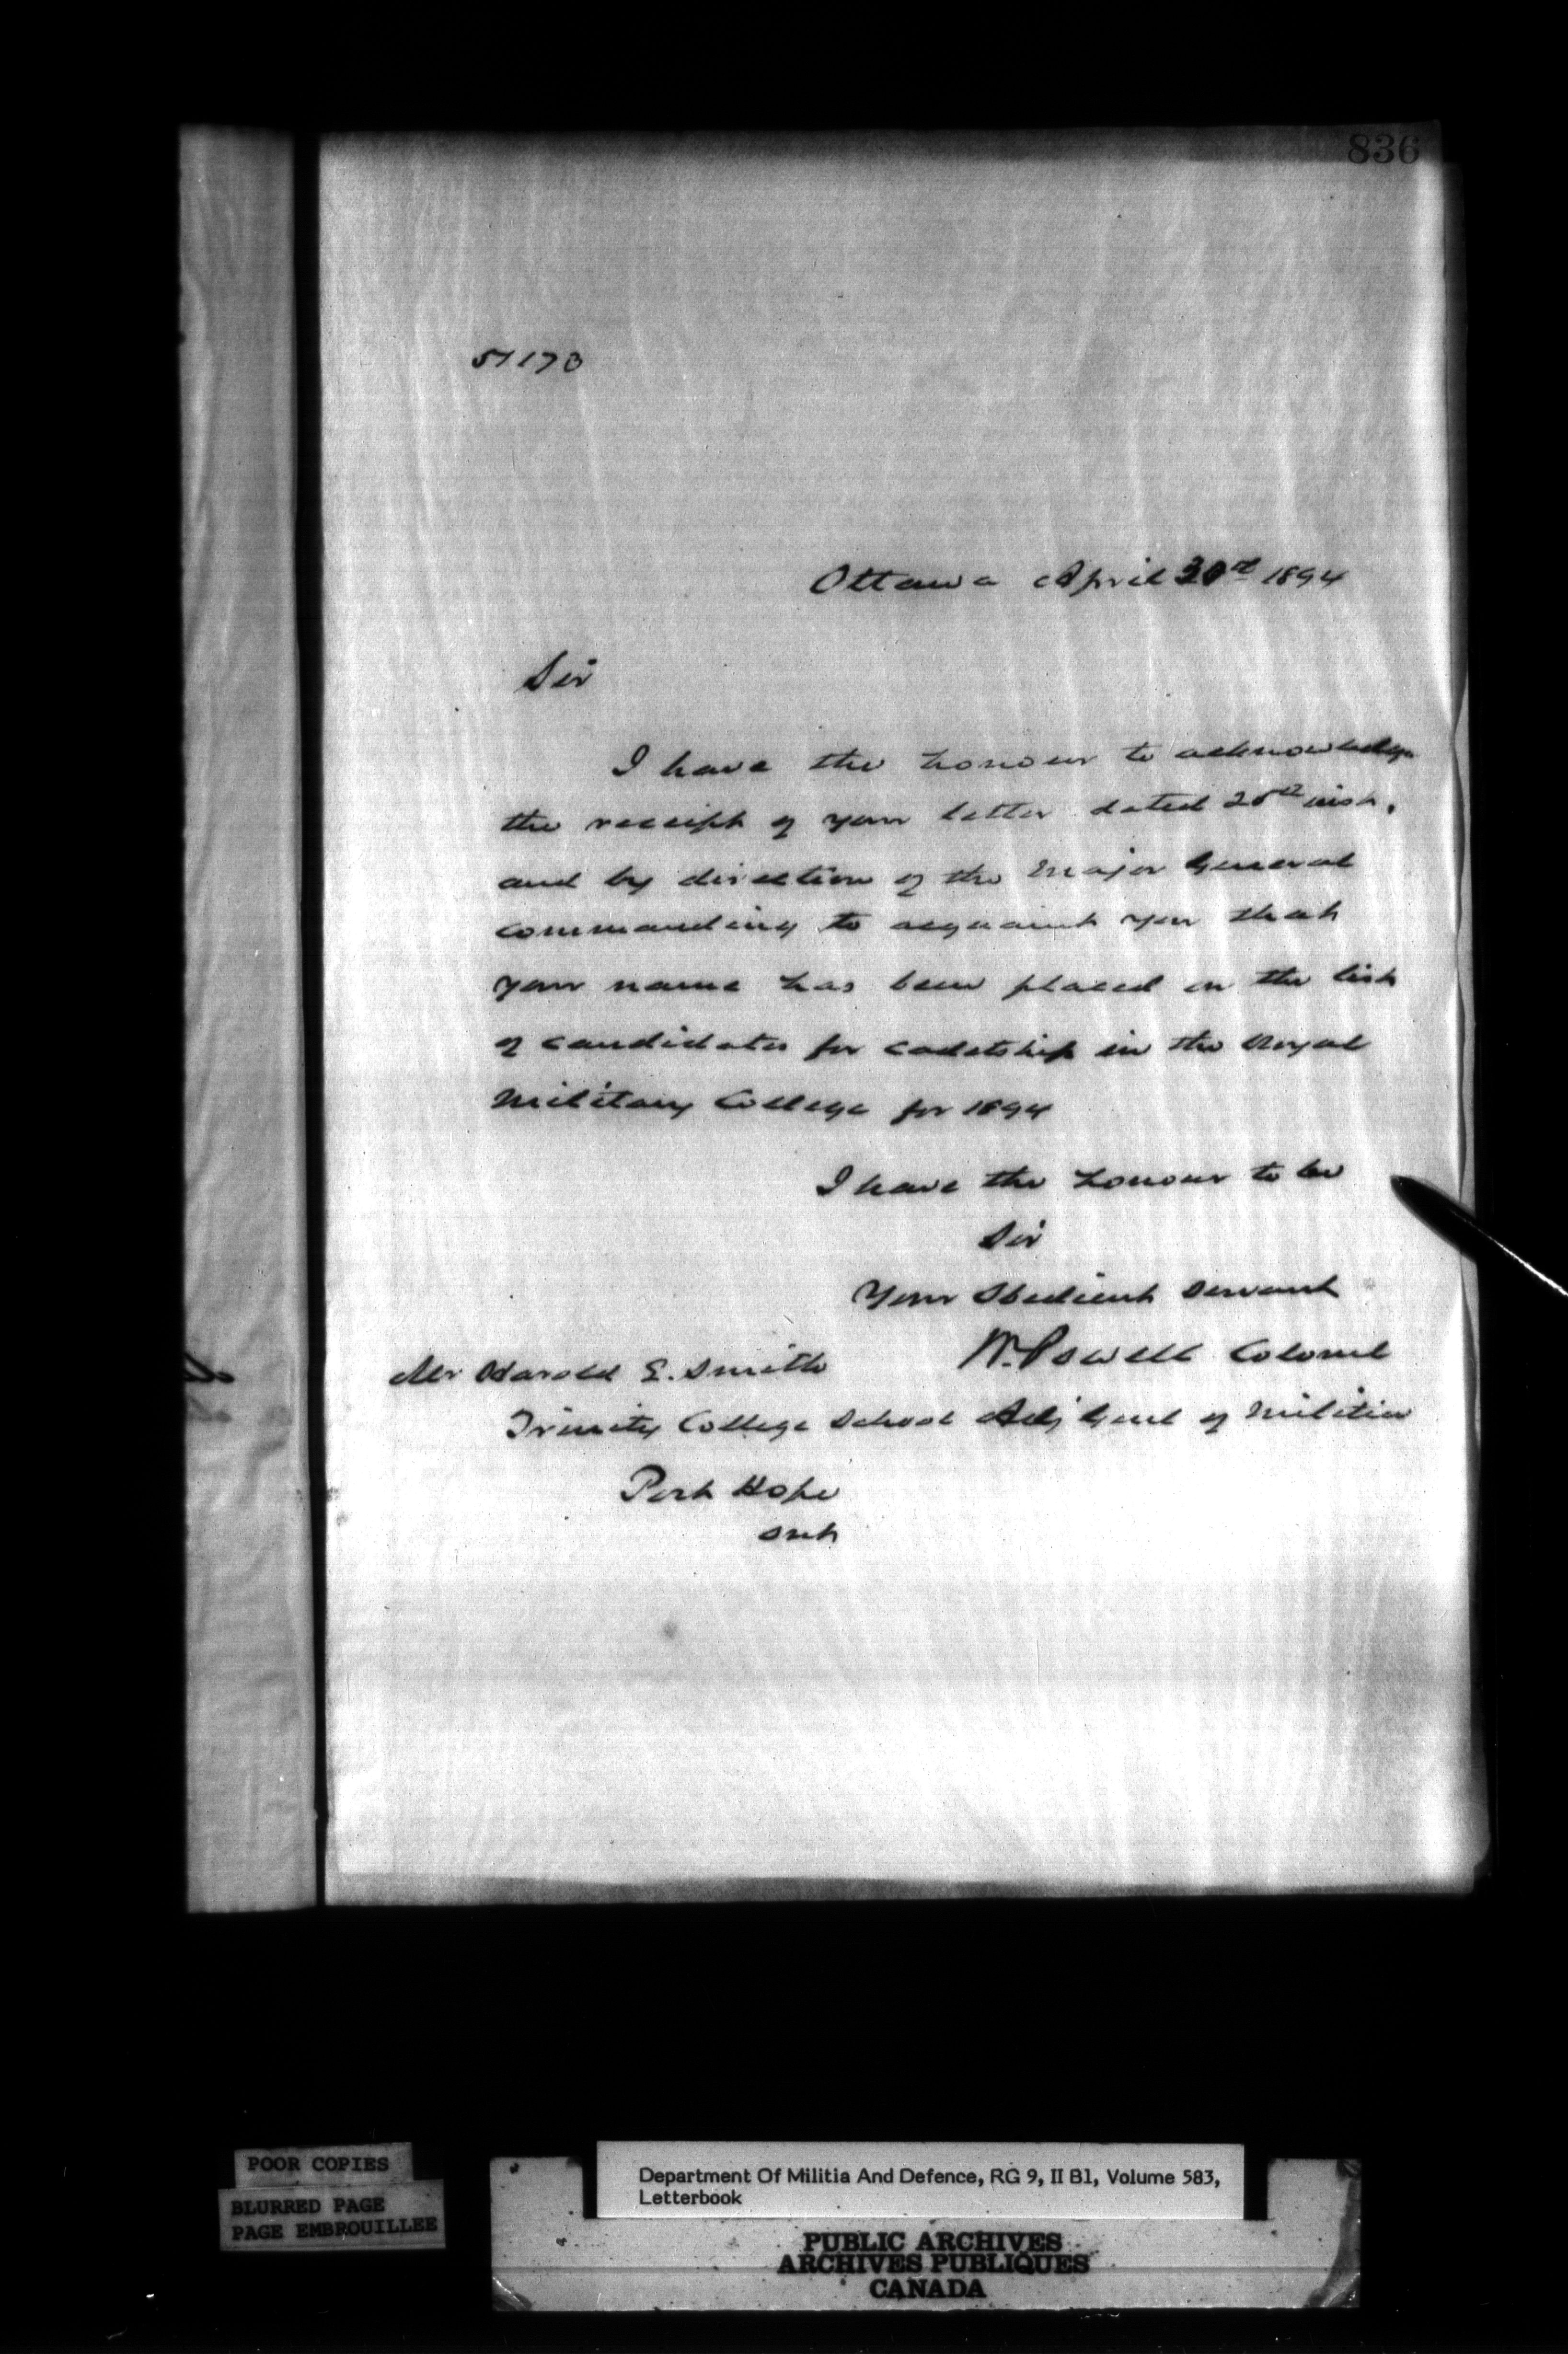 836
51173
Ottawa April 30th 1894
Sir
I have the honour to acknowledge
the receipt of your letter dated 28th inst.
and by direction of the Major General
commanding to acquaint you that
your name has been placed on the list
of candidates for cadetship in the Royal
Military College for 1894
I have the honour to be
Sir
Your Obedient Servant
W. Powell Colonel
Mr Harold E. Smith
Trinity College School Adj Genl of Militia
Port Hope
Ont
POOR COPIES
BLURRED PAGE
PAGE EMBROUILLEE
Department Of Militia And Defence, RG 9, II B1, Volume 583,
Letterbook
PUBLIC ARCHIVES
ARCHIVES PUBLIQUES
CANADA